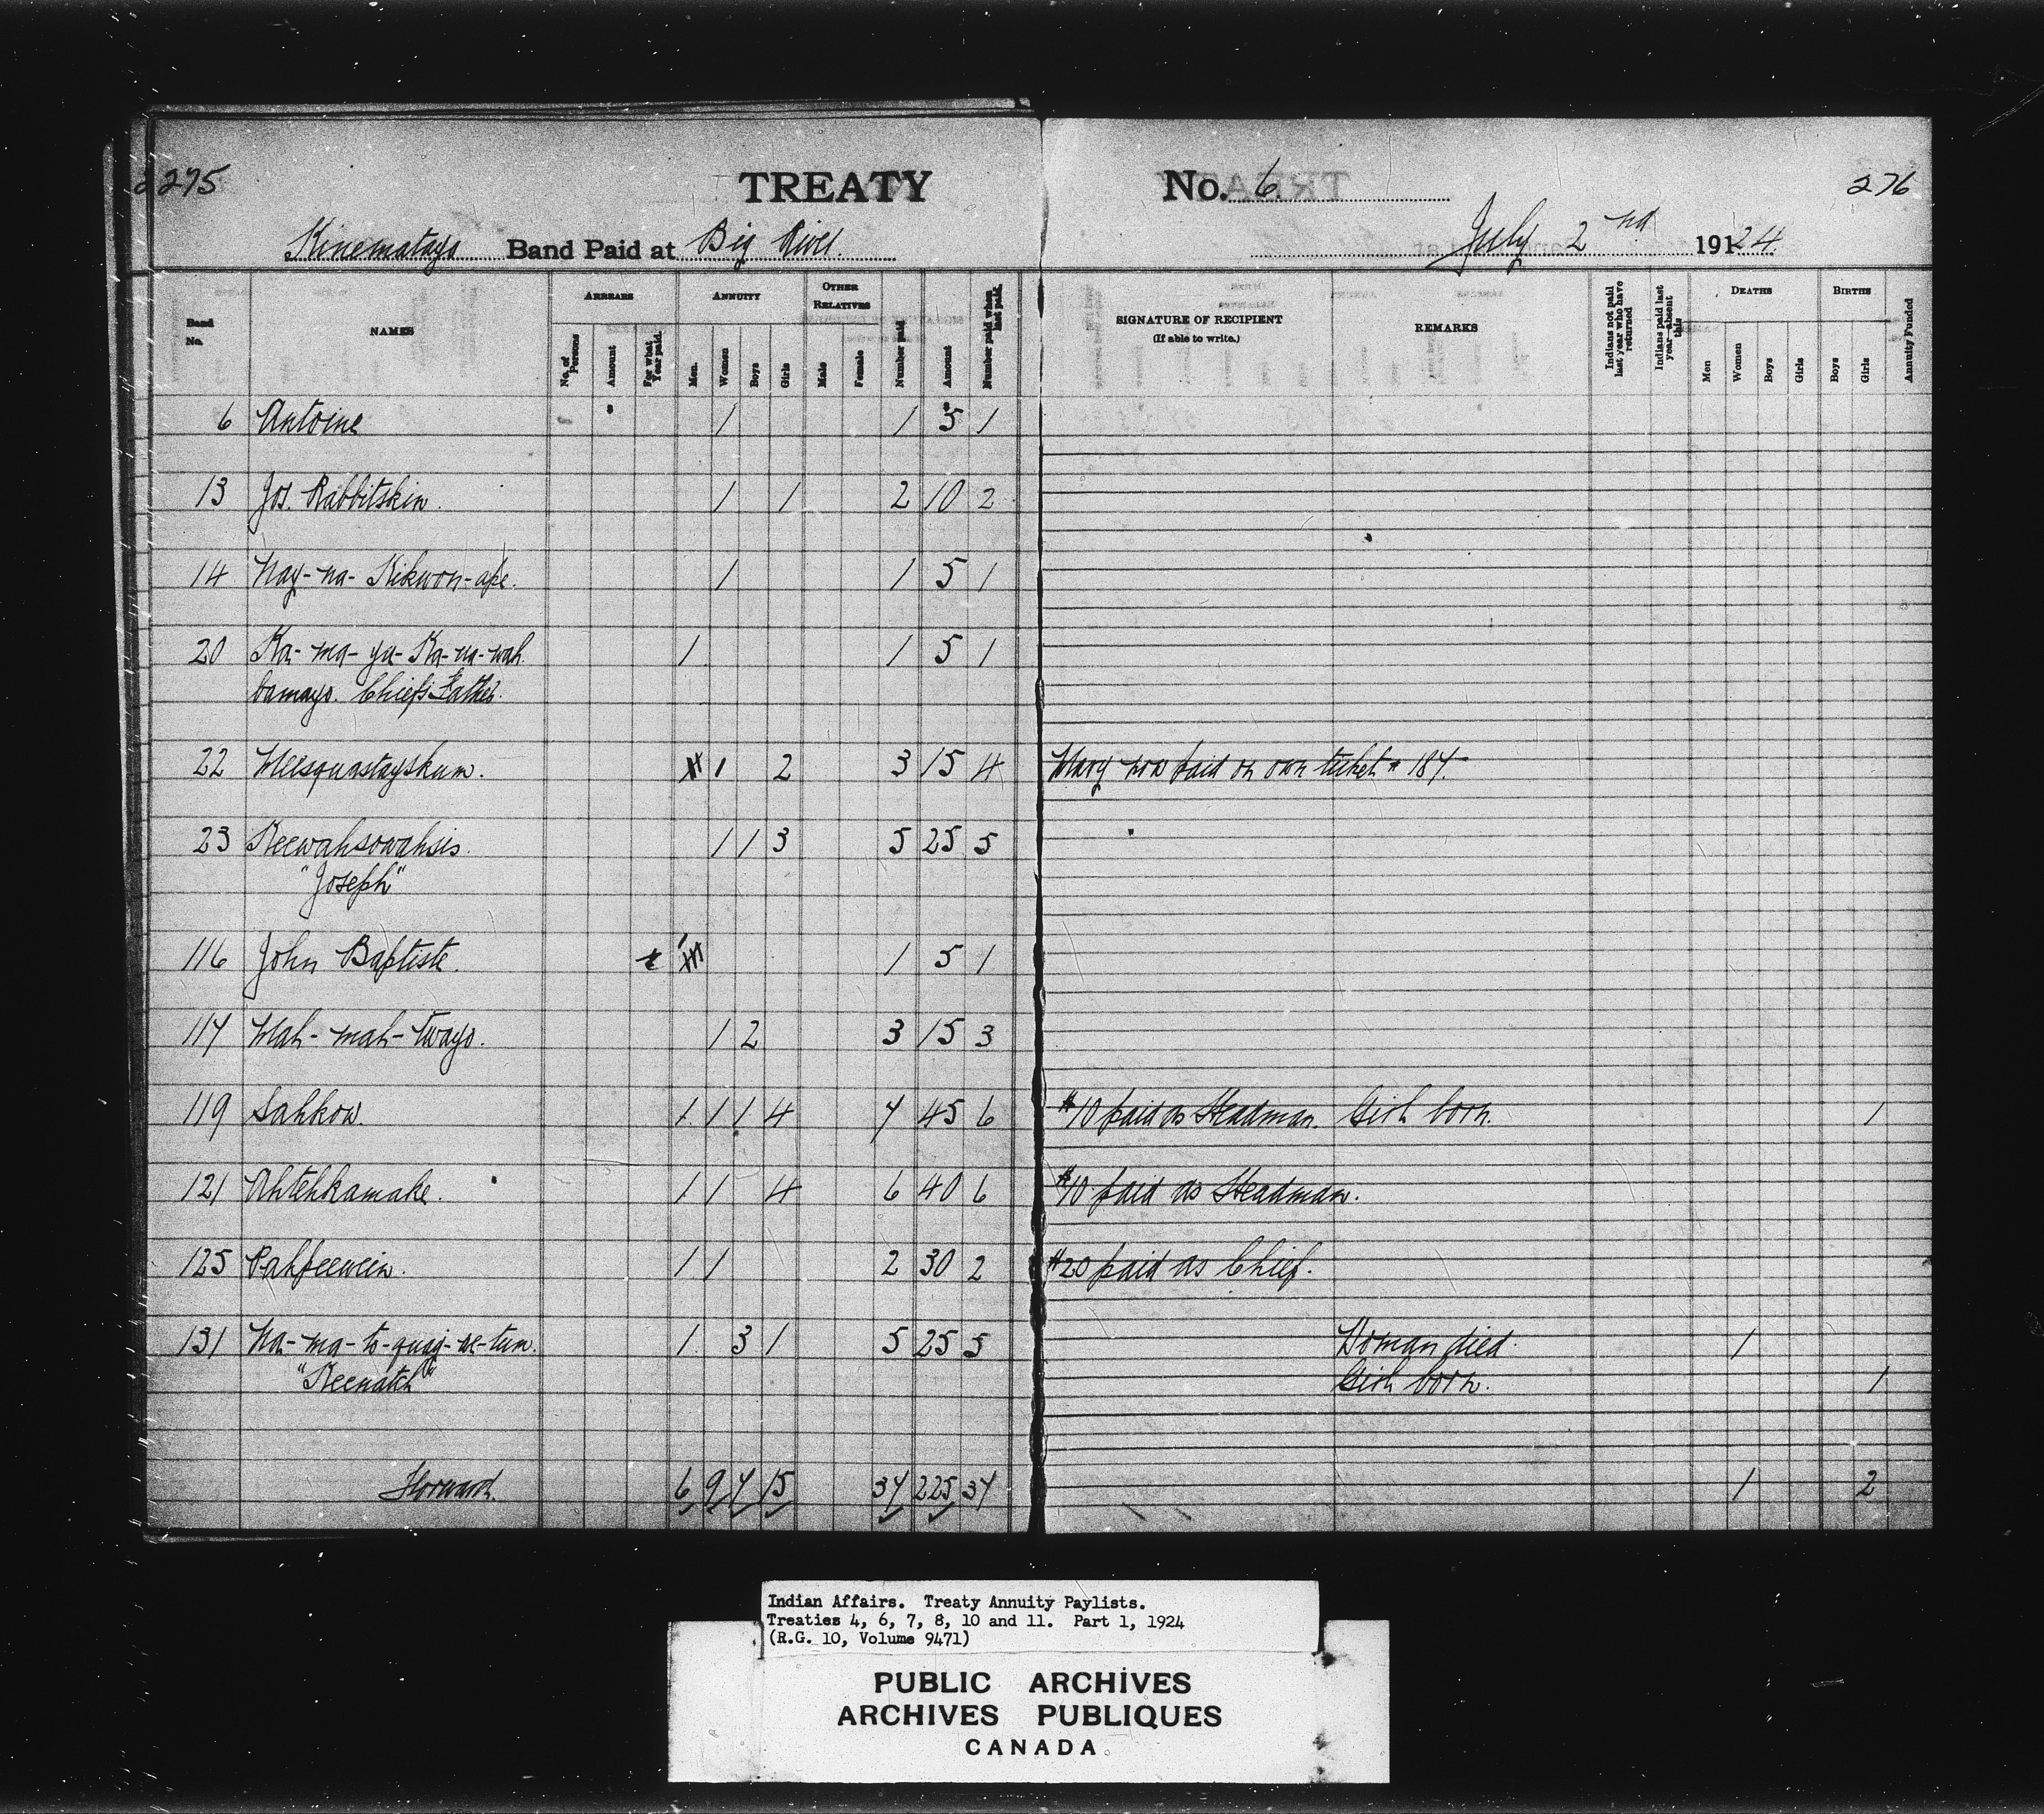 275 TREATY No. 6 276
Kinematayo Band Paid at Big River July 2nd 1924
Band No. NAMES ARREARS ANNUITY OTHER RELATIVES SIGNATURE OF RECIPIENT (If able to write.) REMARKS DEATHS BIRTHS
No. of Persons Amount For what Year paid. Men. Women Boys Girls Male Female Number paid Amount Number paid when last paid. Indians not paid last year who have returned Indians paid last year—absent this Men Women Boys Girls Boys Girls Annuity Funded
6 Antoine 1 1 5 1
13 Jos. Rabbitskin. 1 1 2 10 2
14 Nay-na-Kikwon-ape. 1 1 5 1
20 Ka-ma-yu-Ka-na-wah 1 1 5 1
bamayo. Chief's Father.
22 Meesquastayskum. 1 2 3 15 4 Mary now paid on own ticket # 187.
23 Keewahsowahsis 1 1 3 5 25 5
"Joseph"
116 John Baptiste. 1 1 5 1
117 Mah-mah-twayo. 1 2 3 15 3
119 Sahkow. 1 1 1 4 7 45 6 $10 paid as Headman. Girl born. 1
121 Ahtehkamake. 1 1 4 6 40 6 $10 paid as Headman.
125 Pahpeewein. 1 1 2 30 2 $20 paid as Chief.
131 Na-ma-to-quay-ne-tum. 1 3 1 5 25 5 Woman died. 1
"Keenatch" Girl born. 1
Forward. 6 9 7 15 37 225 37 1 2
Indian Affairs. Treaty Annuity Paylists.
Treaties 4, 6, 7, 8, 10 and 11. Part 1, 1924
(R.G. 10, Volume 9471)
PUBLIC ARCHIVES
ARCHIVES PUBLIQUES
CANADA